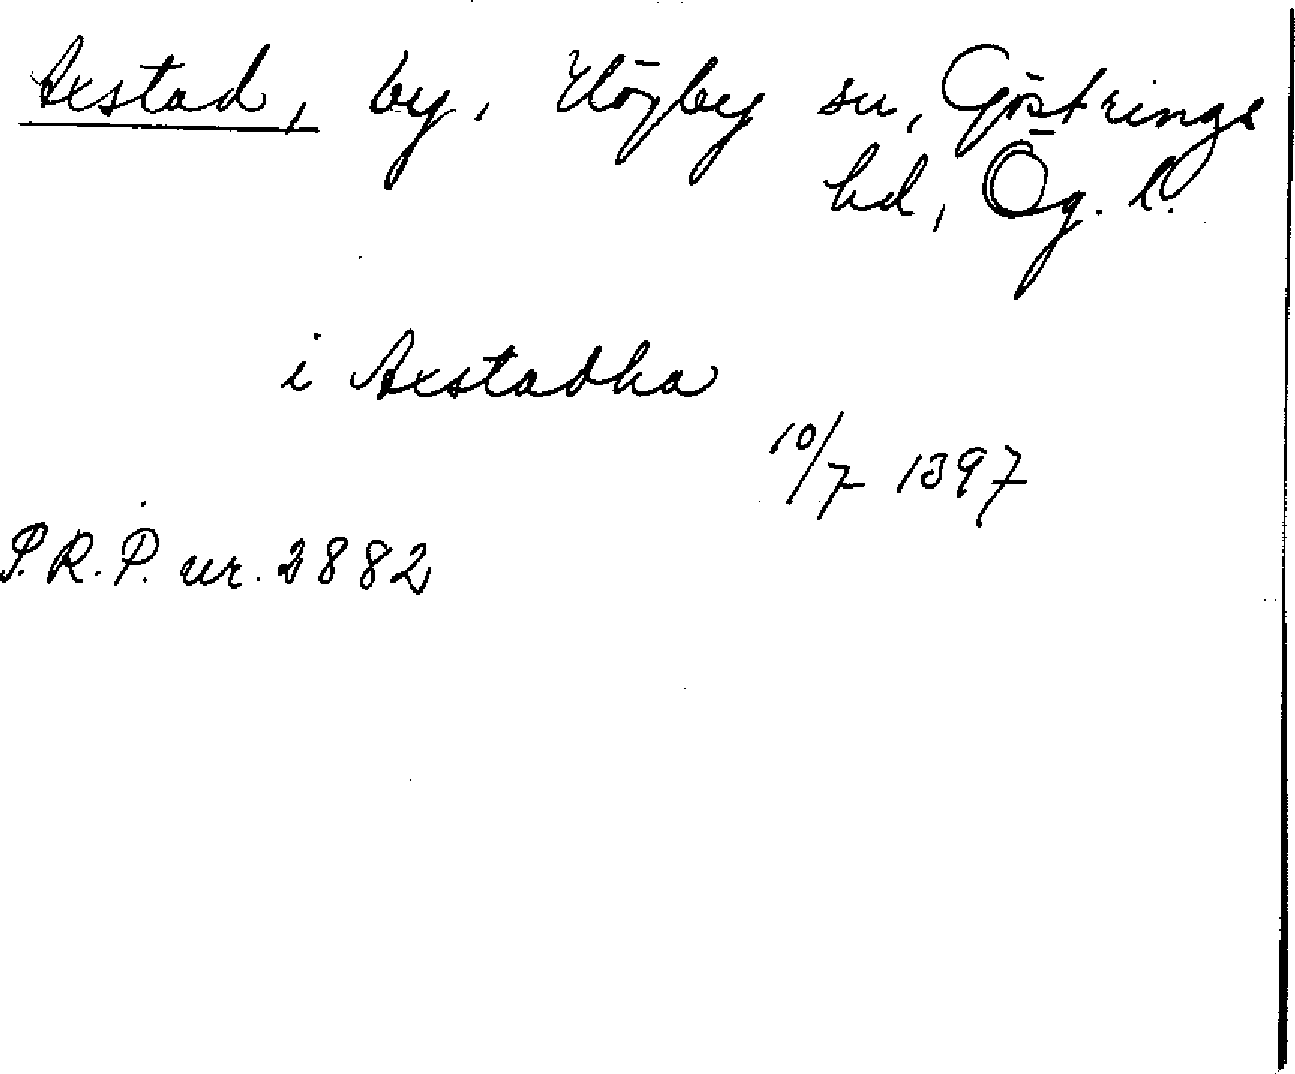 Axstad, by, Högby sn, Göstrings
hd, Ög. l.
i Axstadha
10/7 1397
S.R.P. nr. 2882